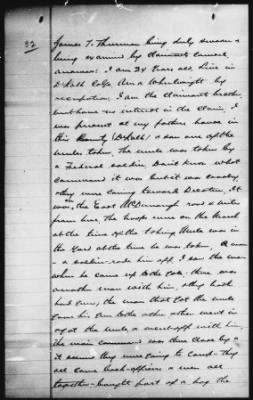 32
James T. Thurman being duly sworn &
being examined by claimants counsel
answers: I am 34 years old, live in
DeKalb Co Ga. Am a Wheelwright by
occupation, I am the claimants brother
but have no interest in the claim, I
was present at my fathers house in
this County (DeKalb) & saw one of the
mules taken. The mule was taken by
a Federal soldier, Dont know what
command it was but it was cavalry,
they were going toward Decatur, It
was on the East McDonough road a mile
from here, The troops were on the March
at the time of the taking. Mule was in
the yard at the time he was taken, A man
- a soldier - rode him off. I saw the man
when he came up to the gate. there was
another man with him, they both
had guns, the man that got the mule
gave his gun to the other & then went in
& got the mule & went off with him,
The main command was then close by &
it seems they were going to camp. They
all came back - officers & men all
together - bought part of a hog the